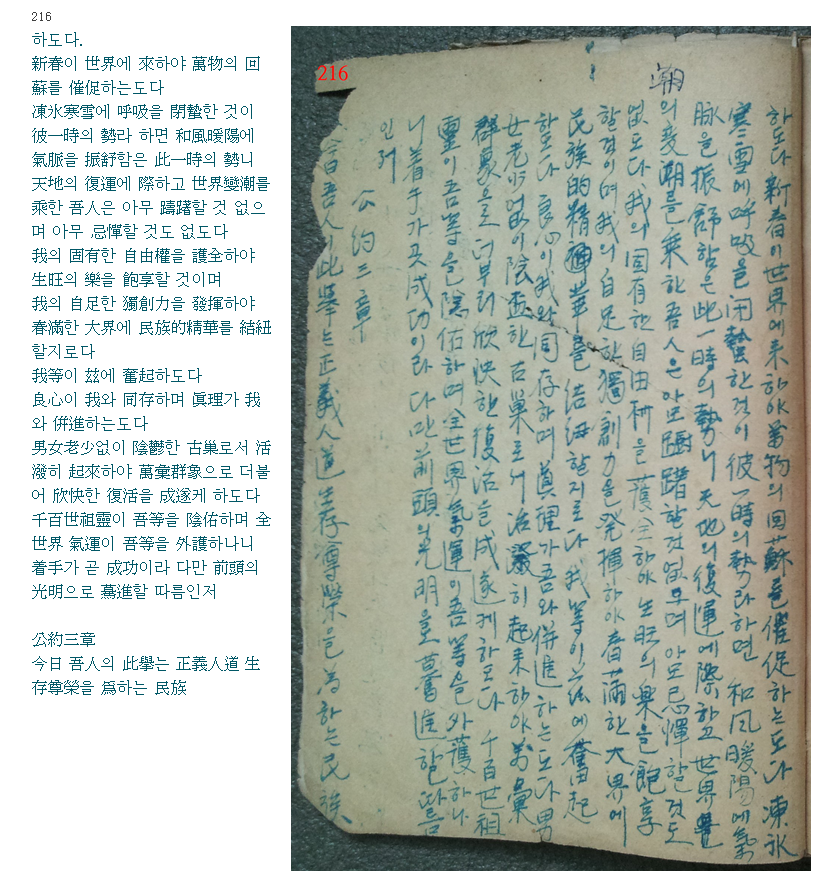 216
하도다.
新春이 世界에 來하야 萬物의 回
蘇를 催促하는도다
凍氷寒雪에 呼吸을 閉蟄한 것이
彼一時의 勢라 하면 和風暖陽에
氣脈을 振舒함은 此一時의 勢니
天地의 復運에 際하고 世界變潮를
乘한 吾人은 아무 躊躇할 것 없으
며 아무 忌憚할 것도 없도다
我의 固有한 自由權을 護全하야
生旺의 樂을 飽享할 것이며
我의 自足한 獨創力을 發揮하야
春滿한 大界에 民族的精華를 結紐
할지로다
我等이 玆에 奮起하도다
良心이 我와 同存하며 眞理가 我
와 倂進하는도다
男女老少없이 陰鬱한 古巢로서 活
潑히 起來하야 萬彙群象으로 더불
어 欣快한 復活을 成遂케 하도다
千百世祖靈이 吾等을 陰佑하며 全
世界 氣運이 吾等을 外護하나니
着手가 곧 成功이라 다만 前頭의
光明으로 驀進할 따름인저
公約三章
今日 吾人의 此擧는 正義人道 生
存尊榮을 爲하는 民族
216
하도다 新春이 世界에 来하야 萬物의 回蘇를 催促하는도다 凍氷
寒雪에 呼吸을 闭蟄한 것이 彼一時의 勢라 하면 和风暖陽에 氣
脉을 振舒함은 此一時의 勢니 天地의 復運에 際하고 世界
의 变潮를 乗한 吾人은 아모 躊躇할 것 없으며 아모 忌憚할 것도
없도다 我의 固有한 自由权을 護全하야 生旺의 樂을 飽享
할 것이며 我의 自足한 獨創力을 発揮하야 春滿한 大界에
民族的精神華를 結紐할지로다 我等이 玆에 奮起
하도다 良心이 我와 同存하며 眞理가 吾와 併進하는도다 男
女老少 없이 陰鬱한 古巢로서 活潑히 起来하야 萬彙
群象으로 더부러 欣快한 復活을 成遂케 하도다 千百世祖
靈이 吾等을 陰佑하며 全世界 氣運이 吾等을 外護하나
니 着手가 곳 成功이라 다만 前頭의 光明으로 驀進할 따름
인저
公約三章
今日 吾人의 此擧는 正義人道 生存尊榮을 為하는 民族